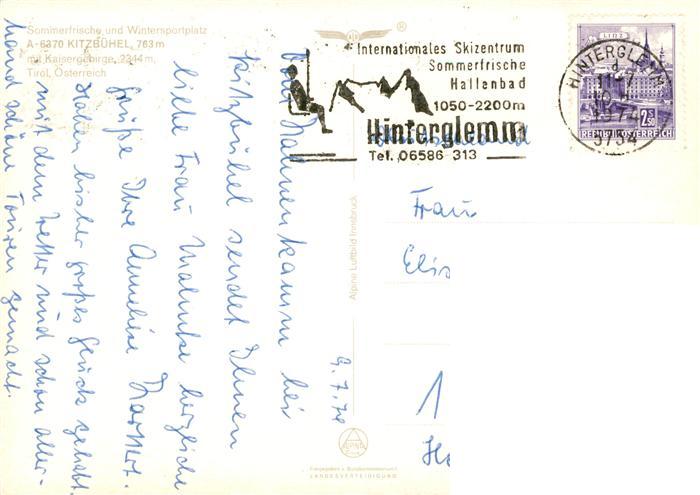 Sommerfrische und Wintersportplatz
A-6370 KITZBÜHEL, 763 m
mit Kaisergebirge, 2344 m,
Tirol, Österreich
®
Internationales Skizentrum
Sommerfrische
Hallenbad
1050-2200m
Hinterglemm
Tel. 06586 313
LINZ
HINTERGLEMM
1974
5754
2.50
REPUBLIK ÖSTERREICH
Vom Hahnenkamm bei
Kitzbühel sendet Ihnen
liebe Frau herzliche
Grüße Ihre Anneliese
Haben bisher großes Glück gehabt
mit dem Wetter und schon aller-
hand schöne Touren gemacht.
9.7.74
Alpine Luftbild Innsbruck
Frau
Elis
1
Freigegeben v. Bundesministerium f.
LANDESVERTEIDIGUNG